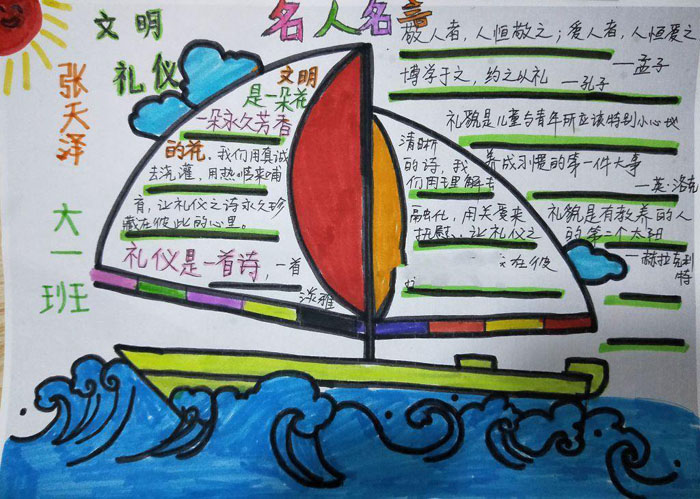 文明
礼仪
张天泽
大一班
名人名言
敬人者，人恒敬之；爱人者，人恒爱之
—孟子
博学于文，约之以礼
—孔子
礼貌是儿童与青年所应该特别小心地
养成习惯的第一件大事
—英·洛克
礼貌是有教养的人
的第二个太阳
—赫拉克利特
文明
是一朵花
一朵永久芳香
的花，我们用真诚
去浇灌，用热情来哺
育，让礼仪之诗永久珍
藏在彼此的心里。
礼仪是一首诗，一首
淡雅
清晰
的诗，我
们用理解去
融化，用关爱来
抚慰，让礼仪之
在彼